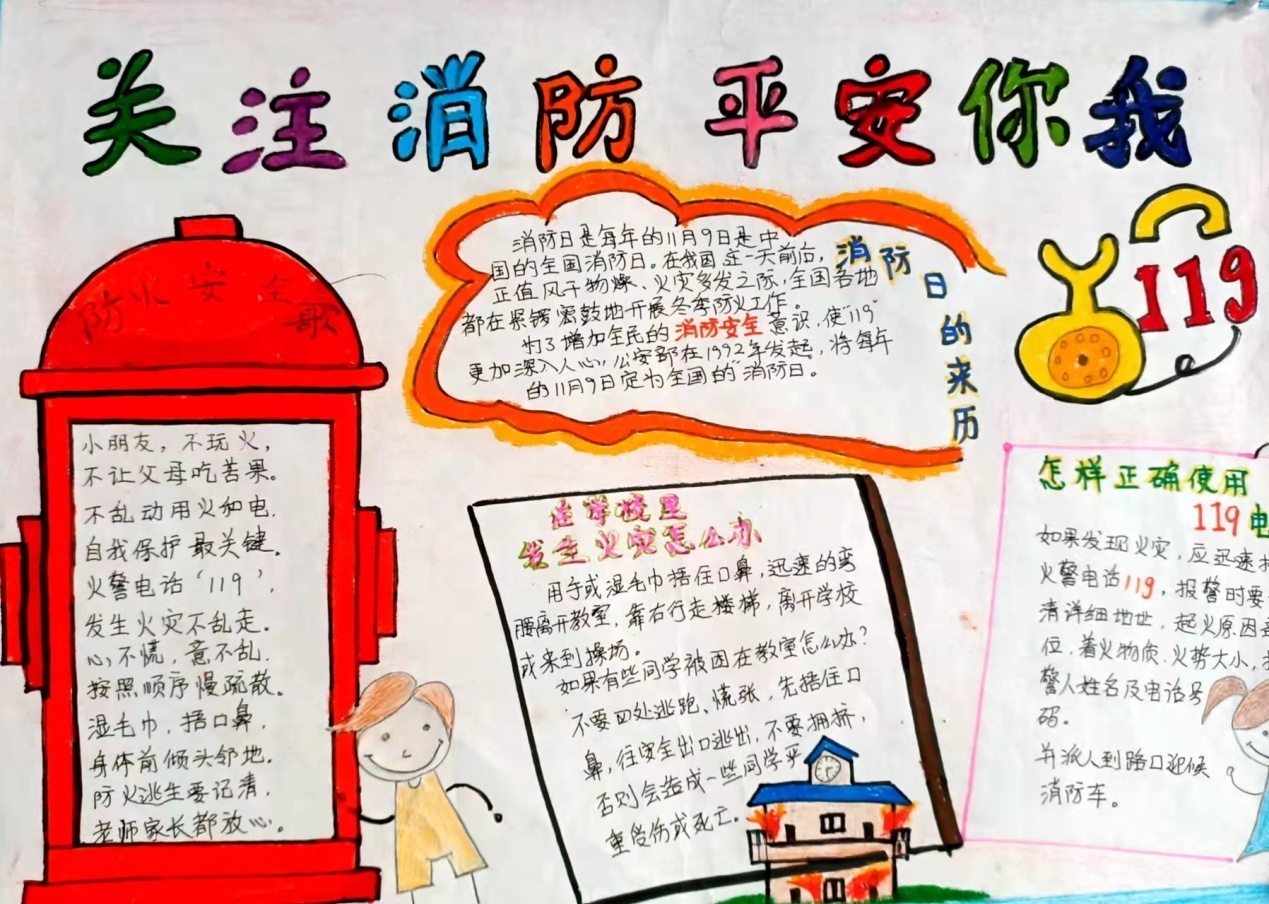 关注消防平安你我
防火安全歌
小朋友，不玩火，
不让父母吃苦果。
不乱动用火和电，
自我保护最关键。
火警电话‘119’，
发生火灾不乱走。
心不慌，意不乱，
按照顺序慢疏散。
湿毛巾，捂口鼻，
身体前倾头邻地。
防火逃生要记清，
老师家长都放心。
消防日的来历
消防日是每年的11月9日是中
国的全国消防日。在我国这一天前后，
正值风干物燥、火灾多发之际，全国各地
都在紧锣密鼓地开展冬季防火工作。
为了增加全民的消防安全意识，使"119"
更加深入人心，公安部在1992年发起，将每年
的11月9日定为全国的"消防日。
119
在学校里
发生火灾怎么办
用手或湿毛巾捂住口鼻，迅速的弯
腰离开教室，靠右行走楼梯，离开学校
或来到操场。
如果有些同学被困在教室怎么办？
不要四处逃跑、慌张，先捂住口
鼻，往安全出口逃出，不要拥挤，
否则会造成一些同学严
重受伤或死亡。
怎样正确使用
119电
如果发现火灾，应迅速
火警电话119，报警时要
清详细地址，起火原因
位，着火物质、火势大小，
警人姓名及电话号
码。
并派人到路口迎候
消防车。